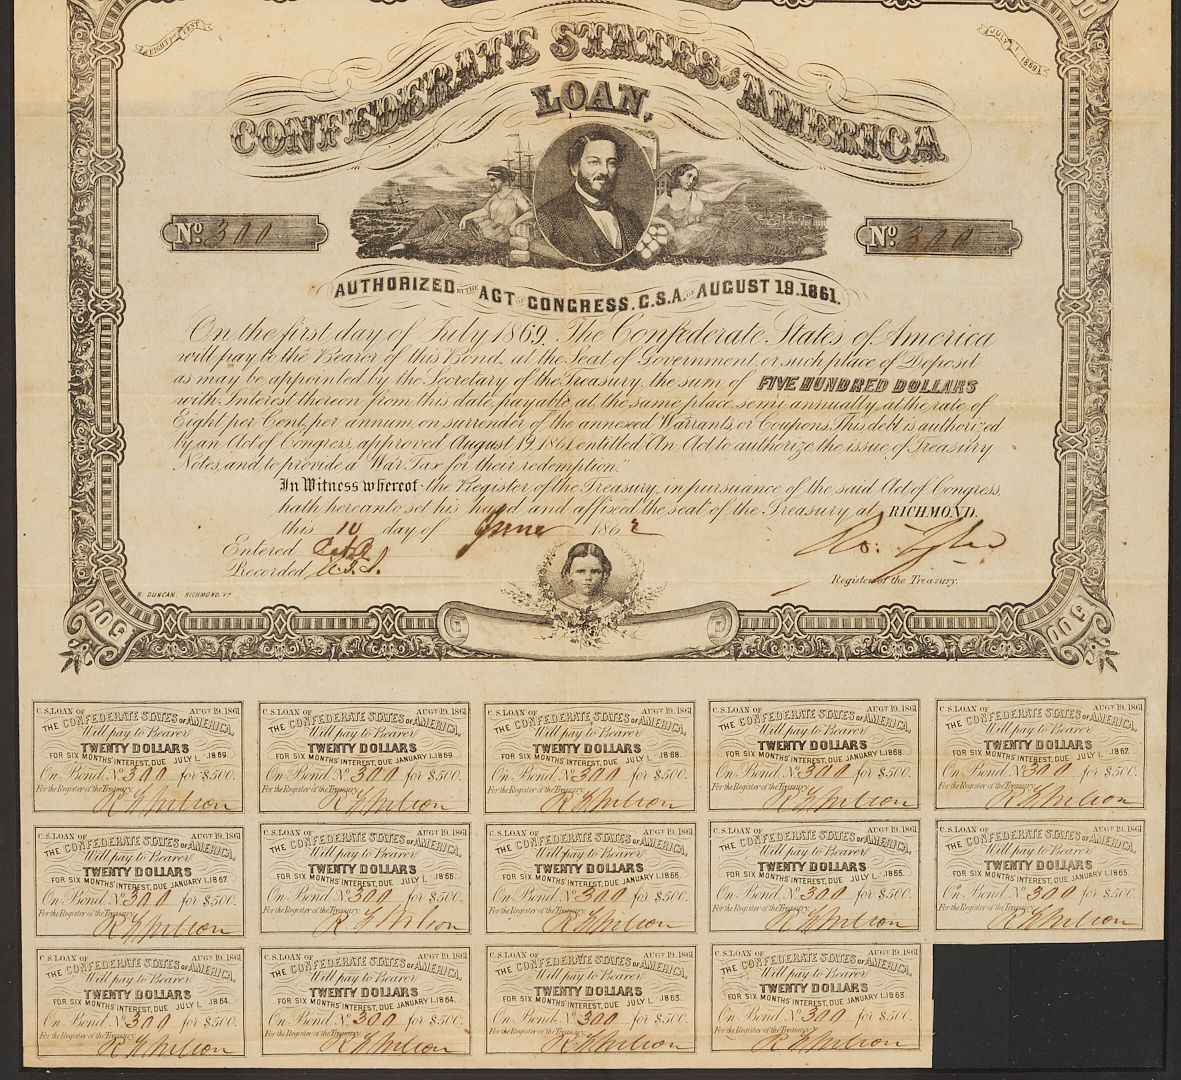 EIGHT per CENT
JULY 1, 1869
CONFEDERATE STATES of AMERICA
LOAN,
No. 300
No. 300
AUTHORIZED BY THE ACT OF CONGRESS. C.S.A. OF AUGUST 19. 1861.
On the first day of July 1869, The Confederate States of America
will pay to the Bearer of this Bond, at the Seat of Government, or such place of Deposit
as may be appointed by the Secretary of the Treasury, the sum of FIVE HUNDRED DOLLARS
with Interest thereon from this date, payable at the same place semi-annually, at the rate of
Eight per Cent, per annum, on surrender of the annexed Warrants, or Coupons. This debt is authorized
by an Act of Congress, approved August 19, 1861, entitled "An Act to authorize the issue of Treasury
Notes, and to provide a War Tax for their redemption."
In Witness whereof the Register of the Treasury, in pursuance of the said Act of Congress,
hath hereunto set his hand and affixed the seal of the Treasury at RICHMOND.
this 10 day of June 1862
Entered
Recorded
Ro: Tyler
Register of the Treasury.
B. DUNCAN. RICHMOND, VA
500
500
C.S. LOAN OF AUGT 19. 1861
THE CONFEDERATE STATES OF AMERICA,
Will pay to Bearer
TWENTY DOLLARS
FOR SIX MONTHS' INTEREST, DUE JULY 1. 1869.
On Bond, No 300 for $500.
For the Register of the Treasury.
C.S. LOAN OF AUGT 19. 1861
THE CONFEDERATE STATES OF AMERICA,
Will pay to Bearer
TWENTY DOLLARS
FOR SIX MONTHS' INTEREST, DUE JANUARY 1. 1869.
On Bond, No 300 for $500.
For the Register of the Treasury.
C.S. LOAN OF AUGT 19. 1861
THE CONFEDERATE STATES OF AMERICA,
Will pay to Bearer
TWENTY DOLLARS
FOR SIX MONTHS' INTEREST, DUE JULY 1. 1868.
On Bond, No 300 for $500.
For the Register of the Treasury.
C.S. LOAN OF AUGT 19. 1861
THE CONFEDERATE STATES OF AMERICA,
Will pay to Bearer
TWENTY DOLLARS
FOR SIX MONTHS' INTEREST, DUE JANUARY 1. 1868.
On Bond, No 300 for $500.
For the Register of the Treasury.
C.S. LOAN OF AUGT 19. 1861
THE CONFEDERATE STATES OF AMERICA,
Will pay to Bearer
TWENTY DOLLARS
FOR SIX MONTHS' INTEREST, DUE JULY 1. 1867.
On Bond, No 300 for $500.
For the Register of the Treasury.
C.S. LOAN OF AUGT 19. 1861
THE CONFEDERATE STATES OF AMERICA,
Will pay to Bearer
TWENTY DOLLARS
FOR SIX MONTHS' INTEREST, DUE JANUARY 1. 1867.
On Bond, No 300 for $500.
For the Register of the Treasury.
C.S. LOAN OF AUGT 19. 1861
THE CONFEDERATE STATES OF AMERICA,
Will pay to Bearer
TWENTY DOLLARS
FOR SIX MONTHS' INTEREST, DUE JULY 1. 1866.
On Bond, No 300 for $500.
For the Register of the Treasury.
C.S. LOAN OF AUGT 19. 1861
THE CONFEDERATE STATES OF AMERICA,
Will pay to Bearer
TWENTY DOLLARS
FOR SIX MONTHS' INTEREST, DUE JANUARY 1. 1866.
On Bond, No 300 for $500.
For the Register of the Treasury.
C.S. LOAN OF AUGT 19. 1861
THE CONFEDERATE STATES OF AMERICA,
Will pay to Bearer
TWENTY DOLLARS
FOR SIX MONTHS' INTEREST, DUE JULY 1. 1865.
On Bond, No 300 for $500.
For the Register of the Treasury.
C.S. LOAN OF AUGT 19. 1861
THE CONFEDERATE STATES OF AMERICA,
Will pay to Bearer
TWENTY DOLLARS
FOR SIX MONTHS' INTEREST, DUE JANUARY 1. 1865.
On Bond, No 300 for $500.
For the Register of the Treasury.
C.S. LOAN OF AUGT 19. 1861
THE CONFEDERATE STATES OF AMERICA,
Will pay to Bearer
TWENTY DOLLARS
FOR SIX MONTHS' INTEREST, DUE JULY 1. 1864.
On Bond, No 300 for $500.
For the Register of the Treasury.
C.S. LOAN OF AUGT 19. 1861
THE CONFEDERATE STATES OF AMERICA,
Will pay to Bearer
TWENTY DOLLARS
FOR SIX MONTHS' INTEREST, DUE JANUARY 1. 1864.
On Bond, No 300 for $500.
For the Register of the Treasury.
C.S. LOAN OF AUGT 19. 1861
THE CONFEDERATE STATES OF AMERICA,
Will pay to Bearer
TWENTY DOLLARS
FOR SIX MONTHS' INTEREST, DUE JULY 1. 1863.
On Bond, No 300 for $500.
For the Register of the Treasury.
C.S. LOAN OF AUGT 19. 1861
THE CONFEDERATE STATES OF AMERICA,
Will pay to Bearer
TWENTY DOLLARS
FOR SIX MONTHS' INTEREST, DUE JANUARY 1. 1863.
On Bond, No 300 for $500.
For the Register of the Treasury.